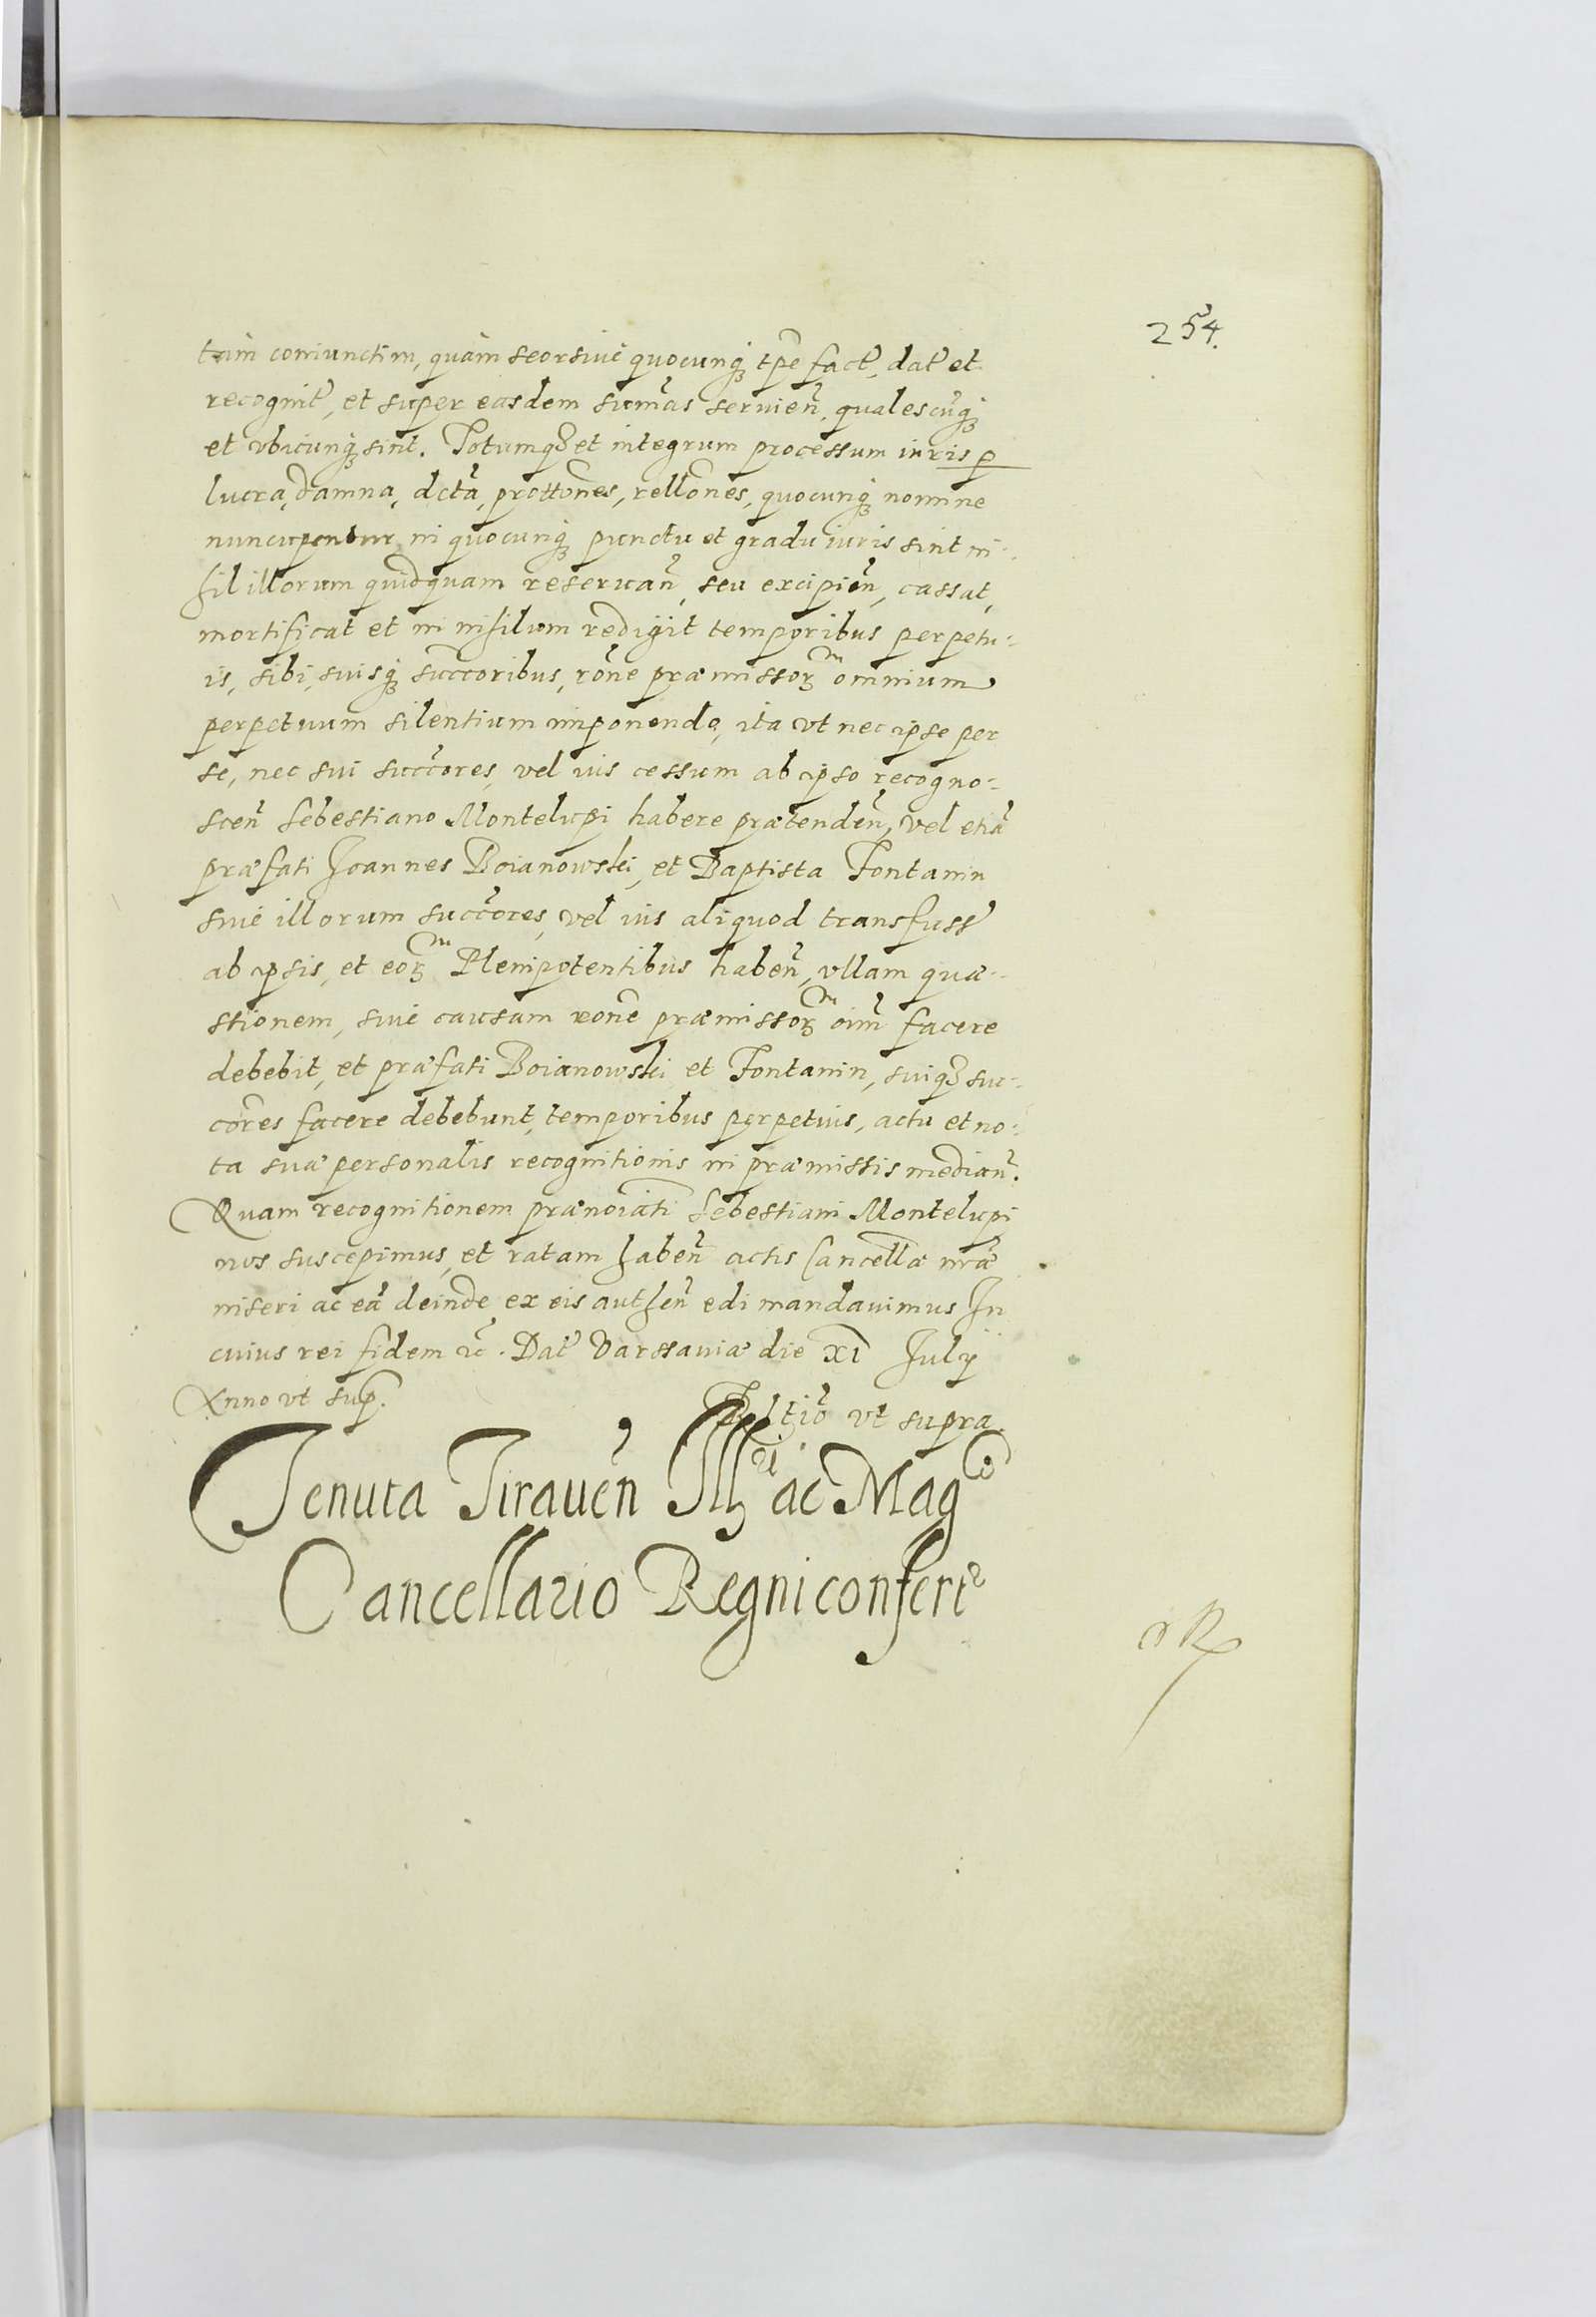 254.
tam coniunctim, quàm seorsiue quocunq₃ tp̃e fact̃, dat̃ et
recognit̃, et super easdem sum̃as seruien̄, qualescūq₃
et vbicunq₃ sint. Totumq₃ et integrum processum iuris p̱
lucra, damna, dctã, prottõnes, rellõnes, quocunq₃ nomine
nuncupentur, in quocunq₃ punctu et gradu iuris sint ni-
hil illorum quidquam reseruan̄, seu excipien̄, cassat,
mortificat et in nihilum redigit temporibus perpetu-
is, sibi, suisq₃ succ̃oribus, rõne præmissoꝝ omnium
perpetuum silentium imponendo, ita vt nec ipse per
se, nec sui succ̃ores, vel ius cessum ab ipso recogno-
scen̄ Sebestiano Montelupi habere prætenden̄, vel etiã
præfati Joannes Boianowski, et Baptista Fontanin
siue illorum succ̃ores, vel ius aliquod transfuss̃
ab ipsis, et eoꝝ Plenipotentibus haben̄, vllam quæ-
stionem, siue causam rõne præmissoꝝ oim̃ facere
debebit, et præfati Boianowski et Fontanin, suiq₃ suc-
cõres facere debebunt, temporibus perpetuis, actu et no-
ta suæ personalis recognitionis in præmissis median̄.
Quam recognitionem prænoiãti Sebestiani Montelupi
nos suscepimus, et ratam haben̄ actis Cancellæ nr̃æ
inseri ac eã deinde ex eis authen̄ edi mandauimus In
cuius rei fidem ꝛc̃. Dat̃ Varssauiæ die XI July
Anno vt sup̱.
vt supra.
Tenuta Tirauen̄ Illꝫri ac Magco
Cancellario Regni confert̃